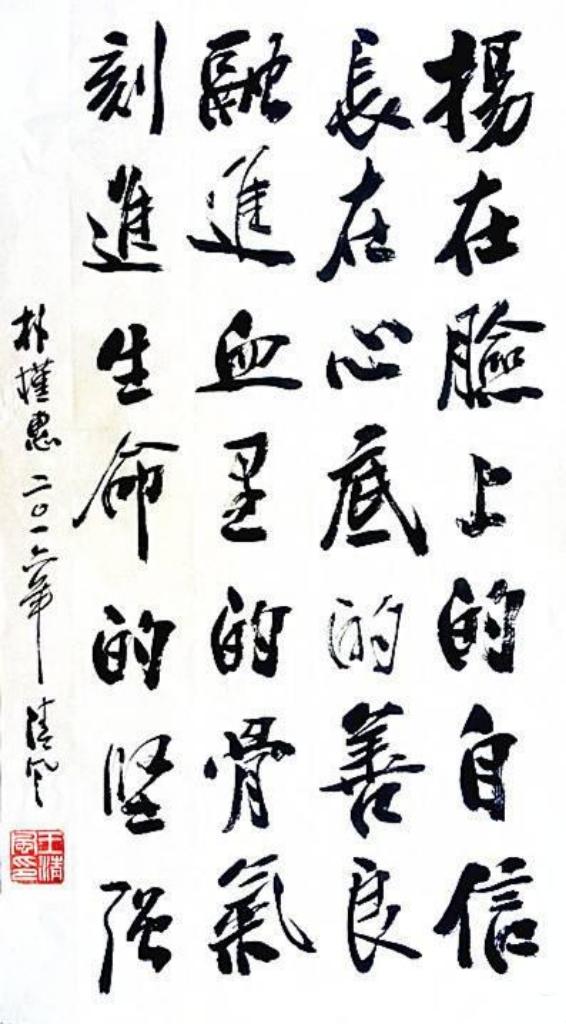 揚在臉上的自信
長在心底的善良
融進血里的骨氣
刻進生命的坚强
朴槿惠 二〇一六年 清风
王清風印